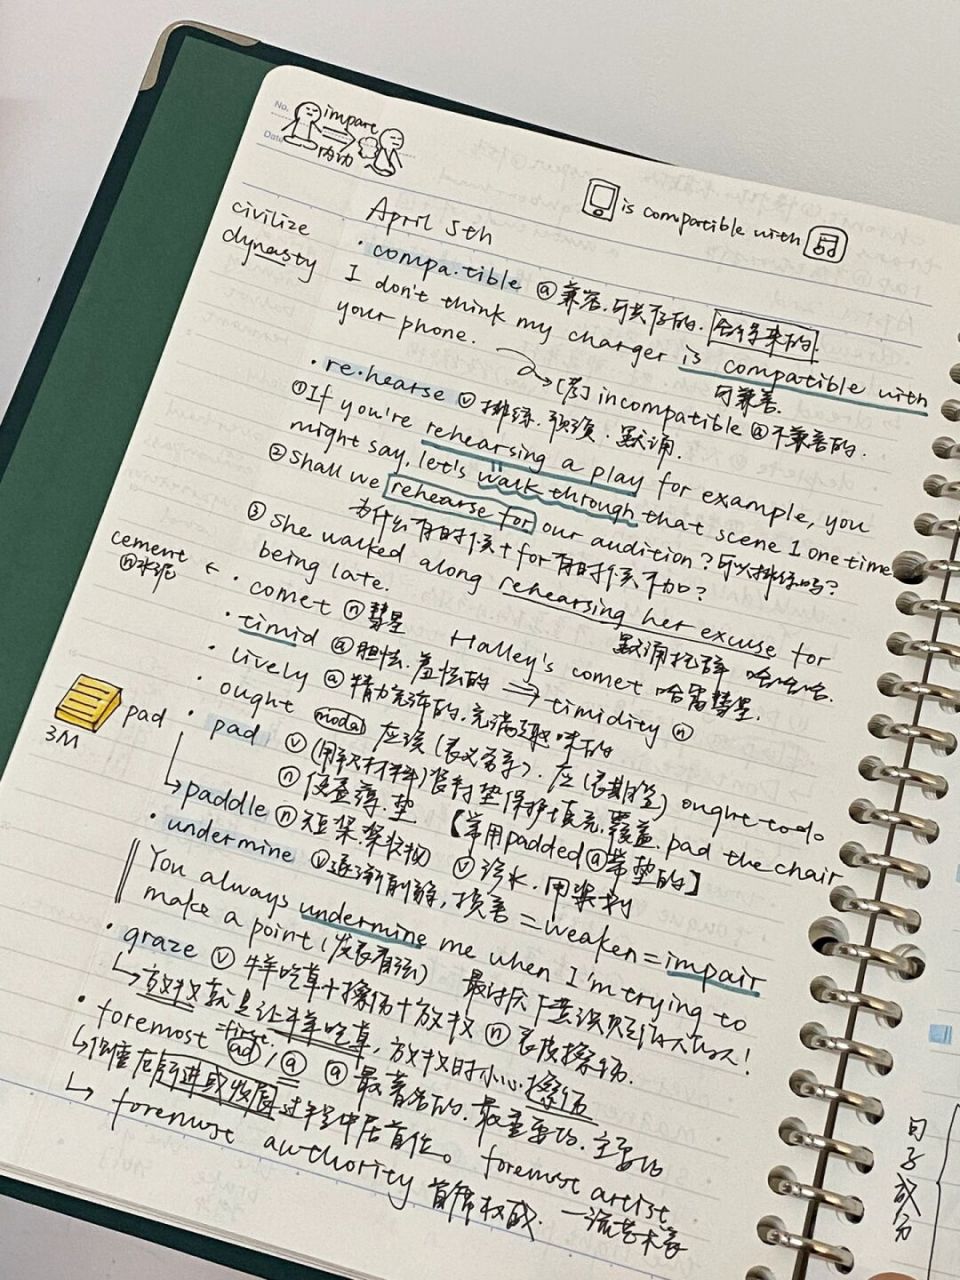 No.
Date
impart
内功
is compatible with
civilize
dynasty
April 5th
· compa.tible ⓐ 兼容.可共存的. 合得来的.
I don't think my charger is compatible with
your phone.
可兼容.
→ [反] incompatible ⓐ 不兼容的.
· re.hearse ⓥ 排练. 预演. 默诵.
① If you're rehearsing a play for example, you
might say, let's walk through that scene 1 one time
② Shall we rehearse for our audition? 可以排练吗?
为什么有时候+for有时候不加?
③ She walked along rehearsing her excuse for
being late.
默诵托辞 哈哈哈.
cement ← · comet ⓝ 彗星 Halley's comet 哈雷彗星.
ⓝ水泥
· timid ⓐ 胆怯. 羞怯的 ⇒ timidity ⓝ
· lively ⓐ 精力充沛的.充满趣味的
· ought modal 应该(表义务等). 应(表期望) ought to do
3M
pad · pad ⓥ (用软材料)垫保护填充.覆盖. pad the chair
ⓝ 便签簿.垫 【常用padded ⓐ 带垫的】
↳ paddle ⓝ 短桨.桨状物 ⓥ 涉水.用桨划
· undermine ⓥ 逐渐削弱, 损害 = weaken = impair
You always undermine me when I'm trying to
make a point (发表看法) 最讨厌
· graze ⓥ 牛羊吃草+擦伤+放牧 ⓝ 表皮擦伤.
↳ 放牧就是让牛羊吃草, 放牧时小心擦伤
· foremost ad / ⓐ ⓐ 最著名的.最重要的.主要的
first.
↳ 侧重在前进或收回过程中居首位。 foremost artist
一流艺术家
↳ foremost authority 首席权威.
句子成分